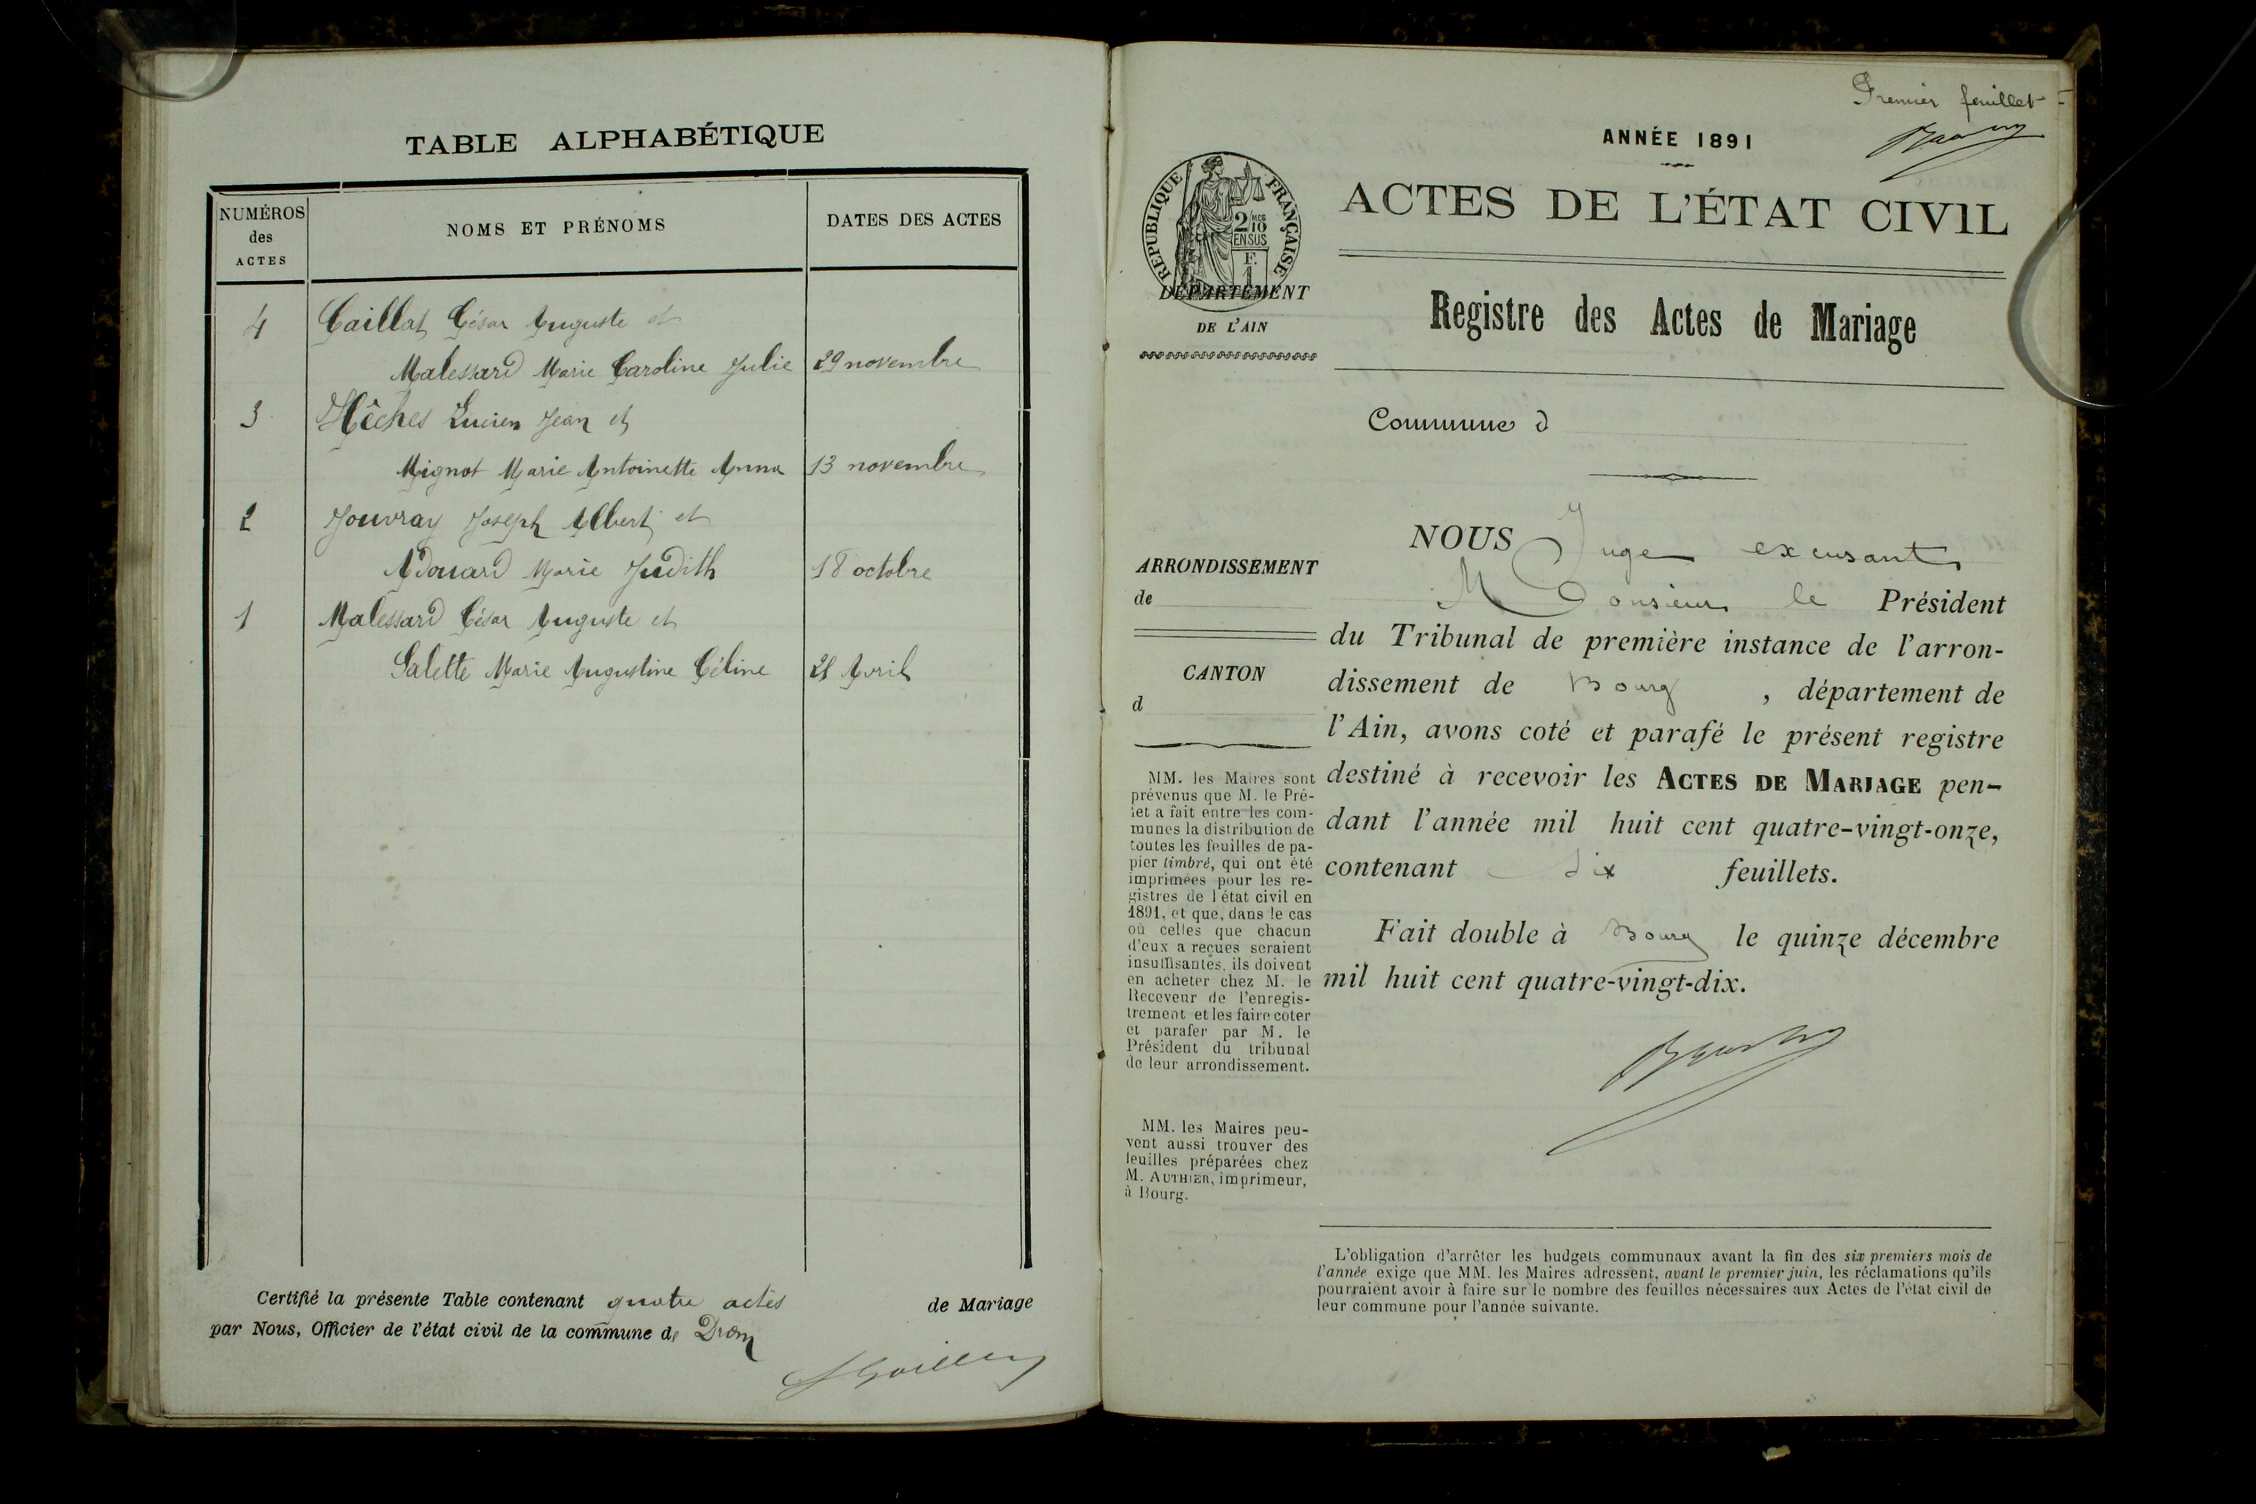 TABLE ALPHABÉTIQUE
NUMÉROS
des
ACTES
NOMS ET PRÉNOMS
DATES DES ACTES
4 Caillat César Auguste et
Malessard Marie Caroline Julie 29 novembre
3 Hêches Lucien Jean et
Mignot Marie Antoinette Anna 13 novembre
2 Jouvray Joseph Albert et
Adouard Marie Judith 18 octobre
1 Malessard César Auguste et
Galette Marie Augustine Céline 21 Avril
Certifié la présente Table contenant quatre actes de Mariage
par Nous, Officier de l'état civil de la commune de Drom
Premier feuillet
ANNÉE 1891
RÉPUBLIQUE FRANÇAISE
2/10
EN SUS
F.
1
DÉPARTEMENT
DE L'AIN
ACTES DE L'ÉTAT CIVIL
Registre des Actes de Mariage
Commune d
ARRONDISSEMENT
de
CANTON
d
NOUS Juge excusant
Monsieur le Président
du Tribunal de première instance de l'arron-
dissement de Bourg , département de
l'Ain, avons coté et parafé le présent registre
destiné à recevoir les ACTES DE MARIAGE pen-
dant l'année mil huit cent quatre-vingt-onze,
contenant dix feuillets.
Fait double à Bourg le quinze décembre
mil huit cent quatre-vingt-dix.
MM. les Maires sont
prévenus que M. le Pré-
fet a fait entre les com-
munes la distribution de
toutes les feuilles de pa-
pier timbré, qui ont été
imprimées pour les re-
gistres de l'état civil en
1891, et que, dans le cas
où celles que chacun
d'eux a reçues seraient
insuffisantes, ils doivent
en acheter chez M. le
Receveur de l'enregis-
trement et les faire coter
et parafer par M. le
Président du tribunal
de leur arrondissement.
MM. les Maires peu-
vent aussi trouver des
feuilles préparées chez
M. AUTHIER, imprimeur,
à Bourg.
L'obligation d'arrêter les budgets communaux avant la fin des six premiers mois de
l'année exige que MM. les Maires adressent, avant le premier juin, les réclamations qu'ils
pourraient avoir à faire sur le nombre des feuilles nécessaires aux Actes de l'état civil de
leur commune pour l'année suivante.